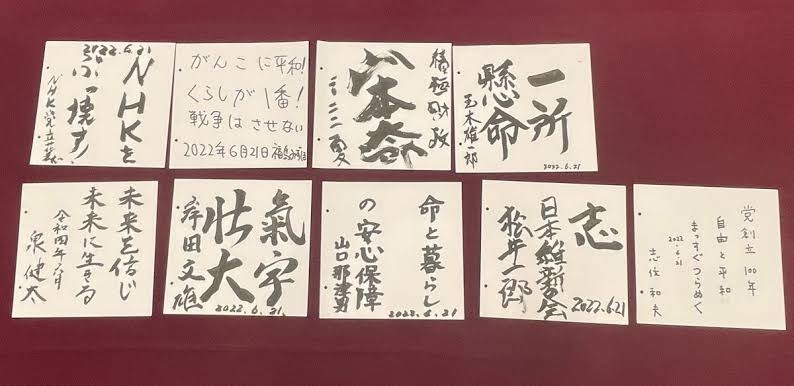 2022.6.21
NHKを
ぶっ壊す!
NHK党 立花
がんこに平和!
くらしが1番!
戦争はさせない
2022年6月21日 福島瑞穂
積極財政
山本太郎
二〇二二夏
一所
懸命
玉木雄一郎
2022.6.21
未来を信じ
未来に生きる
令和四年六月
泉健太
氣宇
壮大
岸田文雄
2022.6.21
命と暮らし
の安心保障
山口那津男
2022.6.21
志
日本維新の会
松井一郎
2022.6.21
党創立100年
自由と平和
まっすぐつらぬく
2022 6.21
志位和夫